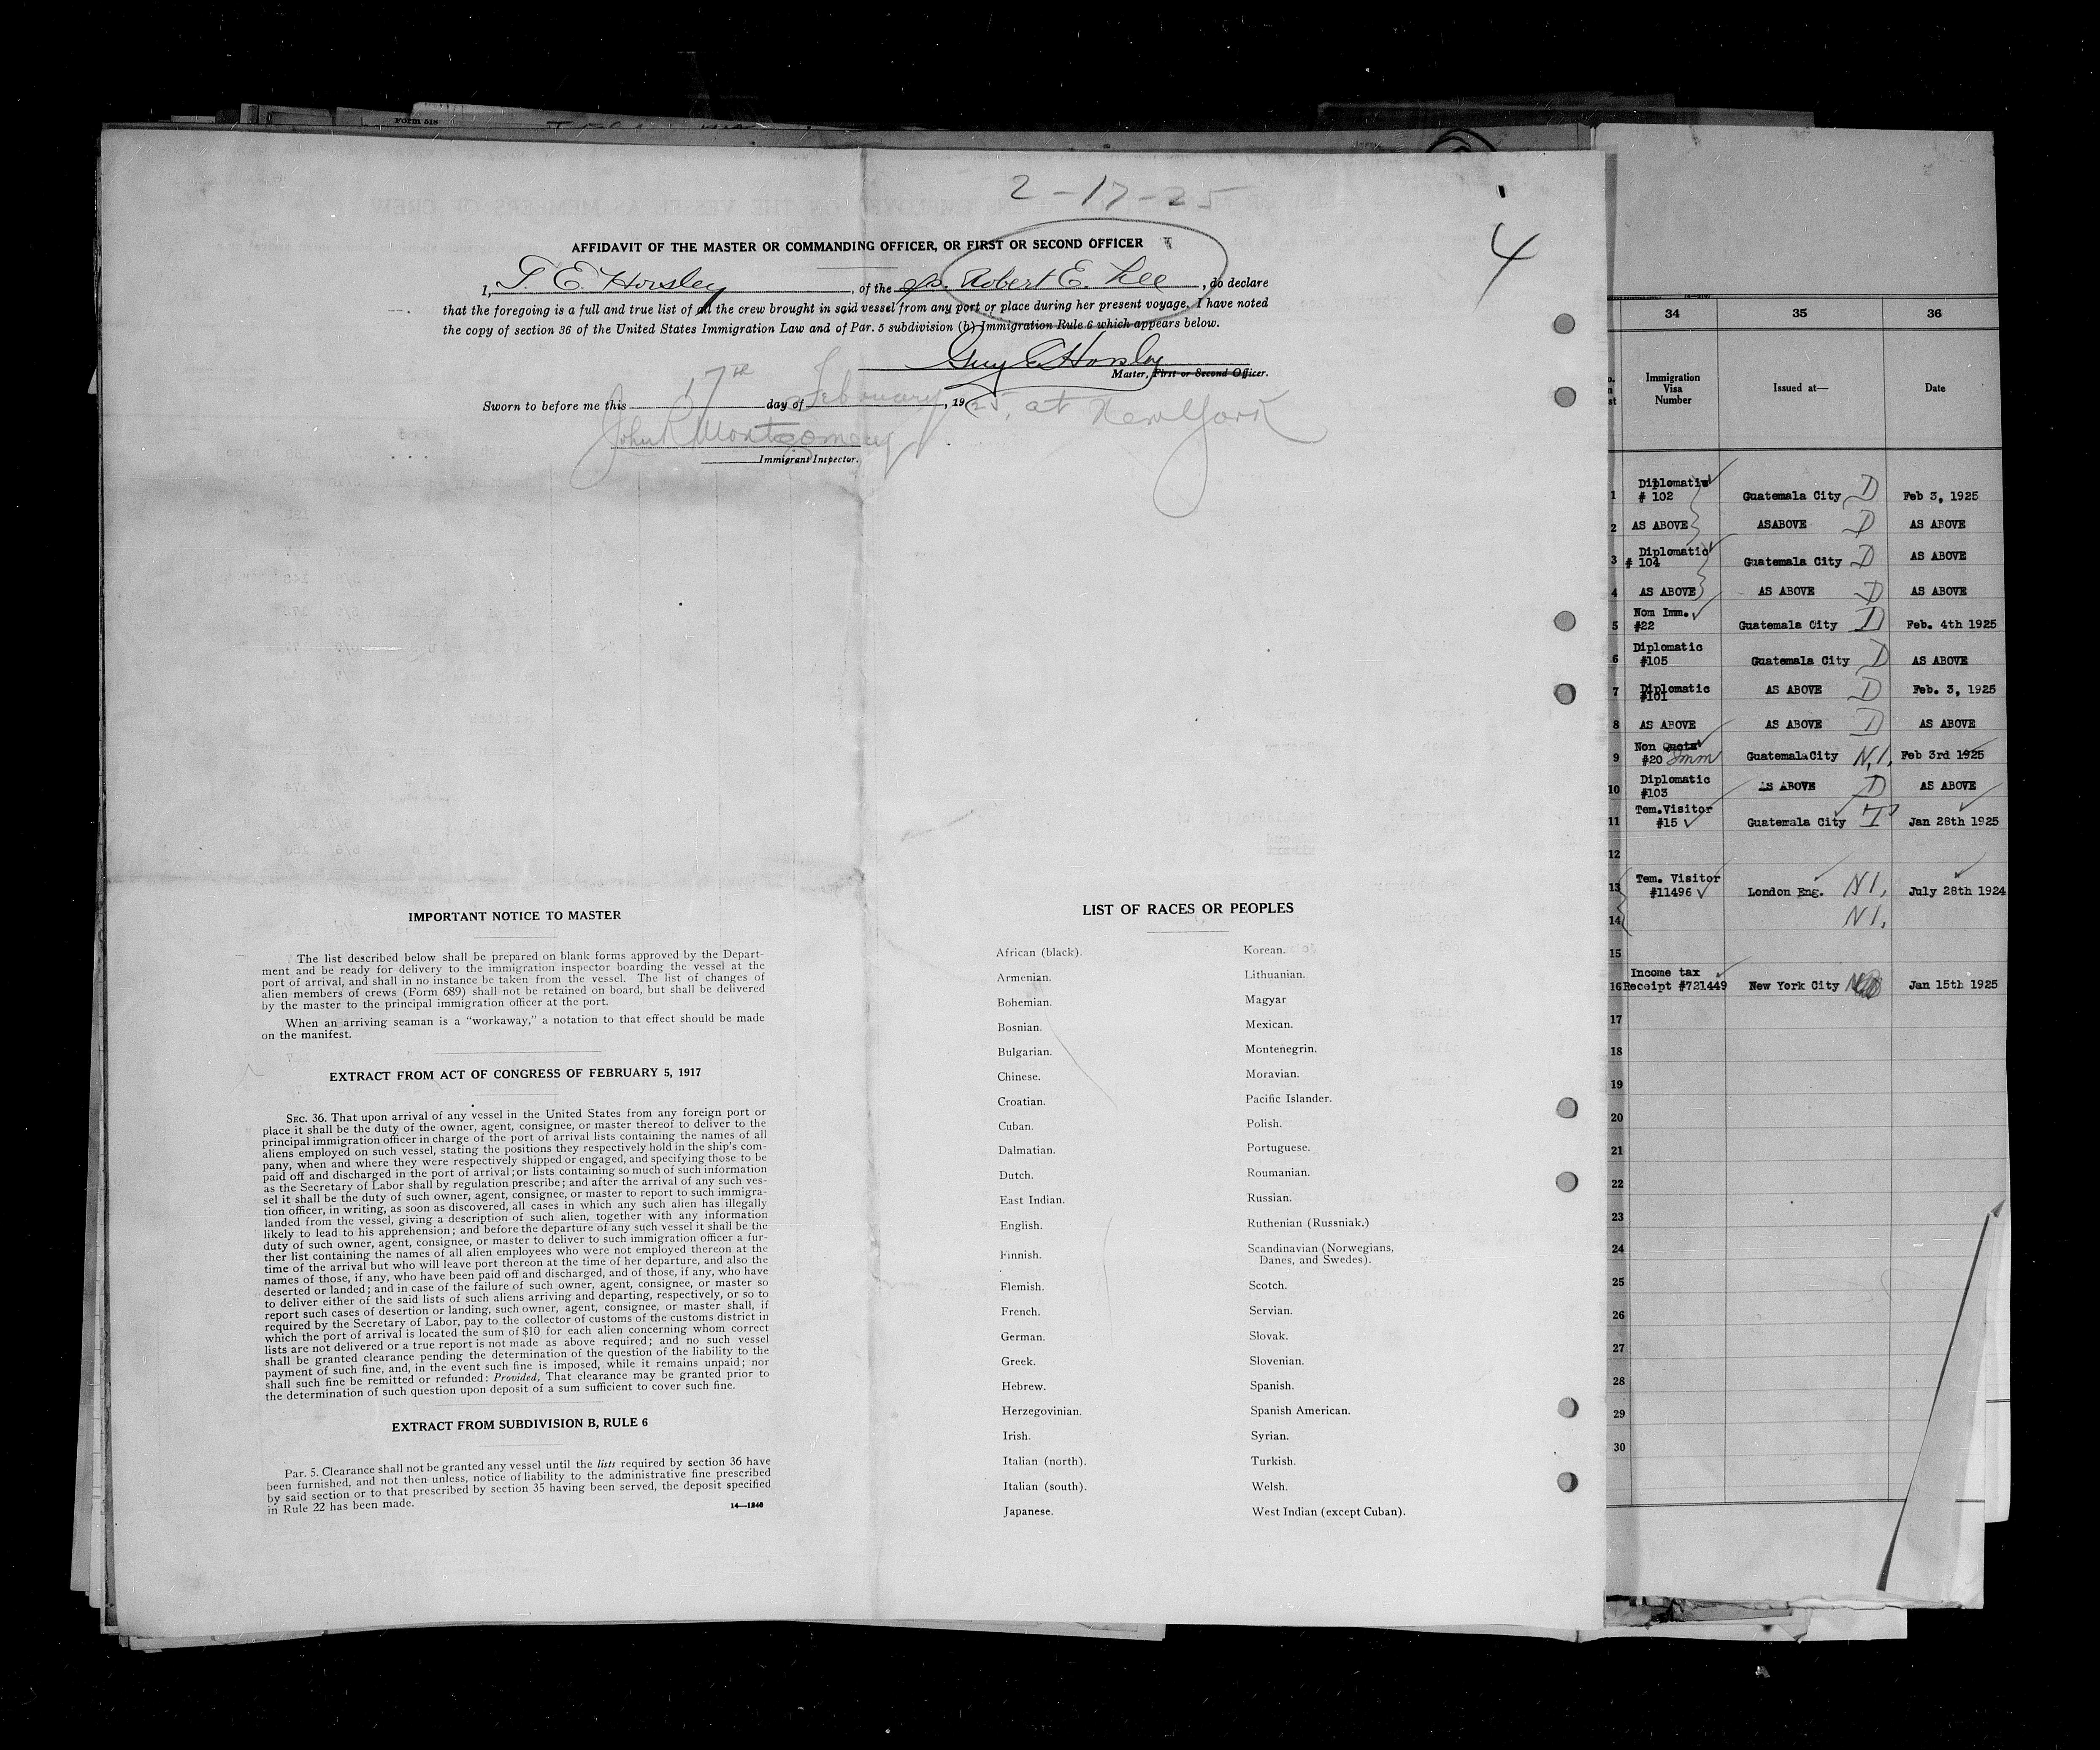 Form 518
2-17-25
4
AFFIDAVIT OF THE MASTER OR COMMANDING OFFICER, OR FIRST OR SECOND OFFICER
I, T. E. Horsley, of the S/S. Robert E. Lee, do declare
that the foregoing is a full and true list of all the crew brought in said vessel from any port or place during her present voyage. I have noted
the copy of section 36 of the United States Immigration Law and of Par. 5 subdivision (b) Immigration Rule 6 which appears below.
Guy E Horsley
Master, First or Second Officer.
Sworn to before me this 17th day of February, 1925, at New York
John R Montgomery
Immigrant Inspector.
IMPORTANT NOTICE TO MASTER
The list described below shall be prepared on blank forms approved by the Depart-
ment and be ready for delivery to the immigration inspector boarding the vessel at the
port of arrival, and shall in no instance be taken from the vessel. The list of changes of
alien members of crews (Form 689) shall not be retained on board, but shall be delivered
by the master to the principal immigration officer at the port.
When an arriving seaman is a "workaway," a notation to that effect should be made
on the manifest.
EXTRACT FROM ACT OF CONGRESS OF FEBRUARY 5, 1917
SEC. 36. That upon arrival of any vessel in the United States from any foreign port or
place it shall be the duty of the owner, agent, consignee, or master thereof to deliver to the
principal immigration officer in charge of the port of arrival lists containing the names of all
aliens employed on such vessel, stating the positions they respectively hold in the ship's com-
pany, when and where they were respectively shipped or engaged, and specifying those to be
paid off and discharged in the port of arrival; or lists containing so much of such information
as the Secretary of Labor shall by regulation prescribe; and after the arrival of any such ves-
sel it shall be the duty of such owner, agent, consignee, or master to report to such immigra-
tion officer, in writing, as soon as discovered, all cases in which any such alien has illegally
landed from the vessel, giving a description of such alien, together with any information
likely to lead to his apprehension; and before the departure of any such vessel it shall be the
duty of such owner, agent, consignee, or master to deliver to such immigration officer a fur-
ther list containing the names of all alien employees who were not employed thereon at the
time of the arrival but who will leave port thereon at the time of her departure, and also the
names of those, if any, who have been paid off and discharged, and of those, if any, who have
deserted or landed; and in case of the failure of such owner, agent, consignee, or master so
to deliver either of the said lists of such aliens arriving and departing, respectively, or so to
report such cases of desertion or landing, such owner, agent, consignee, or master shall, if
required by the Secretary of Labor, pay to the collector of customs of the customs district in
which the port of arrival is located the sum of $10 for each alien concerning whom correct
lists are not delivered or a true report is not made as above required; and no such vessel
shall be granted clearance pending the determination of the question of the liability to the
payment of such fine, and, in the event such fine is imposed, while it remains unpaid; nor
shall such fine be remitted or refunded: Provided, That clearance may be granted prior to
the determination of such question upon deposit of a sum sufficient to cover such fine.
EXTRACT FROM SUBDIVISION B, RULE 6
Par. 5. Clearance shall not be granted any vessel until the lists required by section 36 have
been furnished, and not then unless, notice of liability to the administrative fine prescribed
by said section or to that prescribed by section 35 having been served, the deposit specified
in Rule 22 has been made.
14—1240
LIST OF RACES OR PEOPLES
African (black).
Armenian.
Bohemian.
Bosnian.
Bulgarian.
Chinese.
Croatian.
Cuban.
Dalmatian.
Dutch.
East Indian.
English.
Finnish.
Flemish.
French.
German.
Greek.
Hebrew.
Herzegovinian.
Irish.
Italian (north).
Italian (south).
Japanese.
Korean.
Lithuanian.
Magyar
Mexican.
Montenegrin.
Moravian.
Pacific Islander.
Polish.
Portuguese.
Roumanian.
Russian.
Ruthenian (Russniak.)
Scandinavian (Norwegians,
Danes, and Swedes).
Scotch.
Servian.
Slovak.
Slovenian.
Spanish.
Spanish American.
Syrian.
Turkish.
Welsh.
West Indian (except Cuban).
34 35 36
Immigration
Visa
Number
Issued at—
Date
Diplomatic
1 # 102 Guatemala City D Feb 3, 1925
2 AS ABOVE ASABOVE D AS ABOVE
Diplomatic
3 # 104 Guatemala City D AS ABOVE
4 AS ABOVE AS ABOVE D AS ABOVE
Nom Imm.
5 #22 Guatemala City D Feb. 4th 1925
Diplomatic
6 #105 Guatemala City D AS ABOVE
7 Diplomatic #101 AS ABOVE D Feb. 3, 1925
8 AS ABOVE AS ABOVE D AS ABOVE
Non Quota
9 #20 Imm GuatemalaCity N,I. Feb 3rd 1925
Diplomatic
10 #103 AS ABOVE D AS ABOVE
Tem.Visitor
11 #15 Guatemala City T Jan 28th 1925
12
Tem. Visitor
13 #11496 London Eng. N I, July 28th 1924
14 N I,
15
Income tax
16 Receipt #721449 New York City Jan 15th 1925
17
18
19
20
21
22
23
24
25
26
27
28
29
30